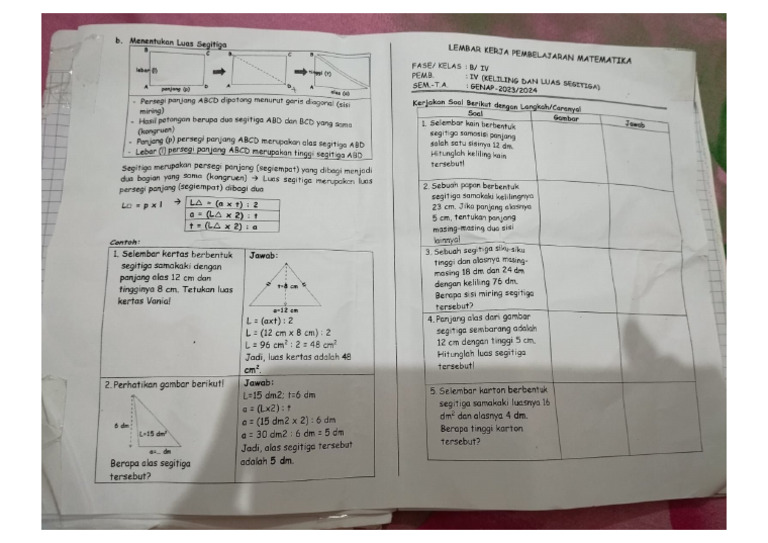 b. Menentukan Luas Segitiga
B C B C B
lebar (l) tinggi (t)
A D A D A
panjang (p) alas (a)
- Persegi panjang ABCD dipotong menurut garis diagonal (sisi
miring)
- Hasil potongan berupa dua segitiga ABD dan BCD yang sama
(kongruen)
- Panjang (p) persegi panjang ABCD merupakan alas segitiga ABD
- Lebar (l) persegi panjang ABCD merupakan tinggi segitiga ABD
Segitiga merupakan persegi panjang (segiempat) yang dibagi menjadi
dua bagian yang sama (kongruen) → Luas segitiga merupakan luas
persegi panjang (segiempat) dibagi dua
L□ = p x l → L△ = (a x t) : 2
a = (L△ x 2) : t
t = (L△ x 2) : a
Contoh:
1. Selembar kertas berbentuk
segitiga samakaki dengan
panjang alas 12 cm dan
tingginya 8 cm. Tetukan luas
kertas Vania!
Jawab:
t=8 cm
a=12 cm
L = (axt) : 2
L = (12 cm x 8 cm) : 2
L = 96 cm² : 2 = 48 cm²
Jadi, luas kertas adalah 48
cm².
2. Perhatikan gambar berikut!
6 dm
L=15 dm²
a=... dm
Berapa alas segitiga
tersebut?
Jawab:
L=15 dm2; t=6 dm
a = (Lx2) : t
a = (15 dm2 x 2) : 6 dm
a = 30 dm2 : 6 dm = 5 dm
Jadi, alas segitiga tersebut
adalah 5 dm.
LEMBAR KERJA PEMBELAJARAN MATEMATIKA
FASE/ KELAS : B/ IV
PEMB. : IV (KELILING DAN LUAS SEGITIGA)
SEM.-T.A. : GENAP-2023/2024
Kerjakan Soal Berikut dengan Langkah/Caranya!
Soal Gambar Jawab
1. Selembar kain berbentuk
segitiga samasisi panjang
salah satu sisinya 12 dm.
Hitunglah keliling kain
tersebut!
2. Sebuah papan berbentuk
segitiga samakaki kelilingnya
23 cm. Jika panjang alasnya
5 cm, tentukan panjang
masing-masing dua sisi
lainnya!
3. Sebuah segitiga siku-siku
tinggi dan alasnya masing-
masing 18 dm dan 24 dm
dengan keliling 76 dm.
Berapa sisi miring segitiga
tersebut?
4. Panjang alas dari gambar
segitiga sembarang adalah
12 cm dengan tinggi 5 cm.
Hitunglah luas segitiga
tersebut!
5. Selembar karton berbentuk
segitiga samakaki luasnya 16
dm² dan alasnya 4 dm.
Berapa tinggi karton
tersebut?